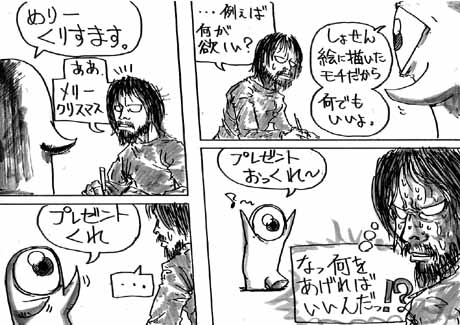 めりー
くりすます。
ああ、
メリー
クリスマス
プレゼント
くれ
・・・
・・・例えば
何が
欲しい?
しょせん
絵に描いた
モチだから
何でも
いいよ。
プレゼント
おっくれ〜
なっ何を
あげれば
いいんだっ!?